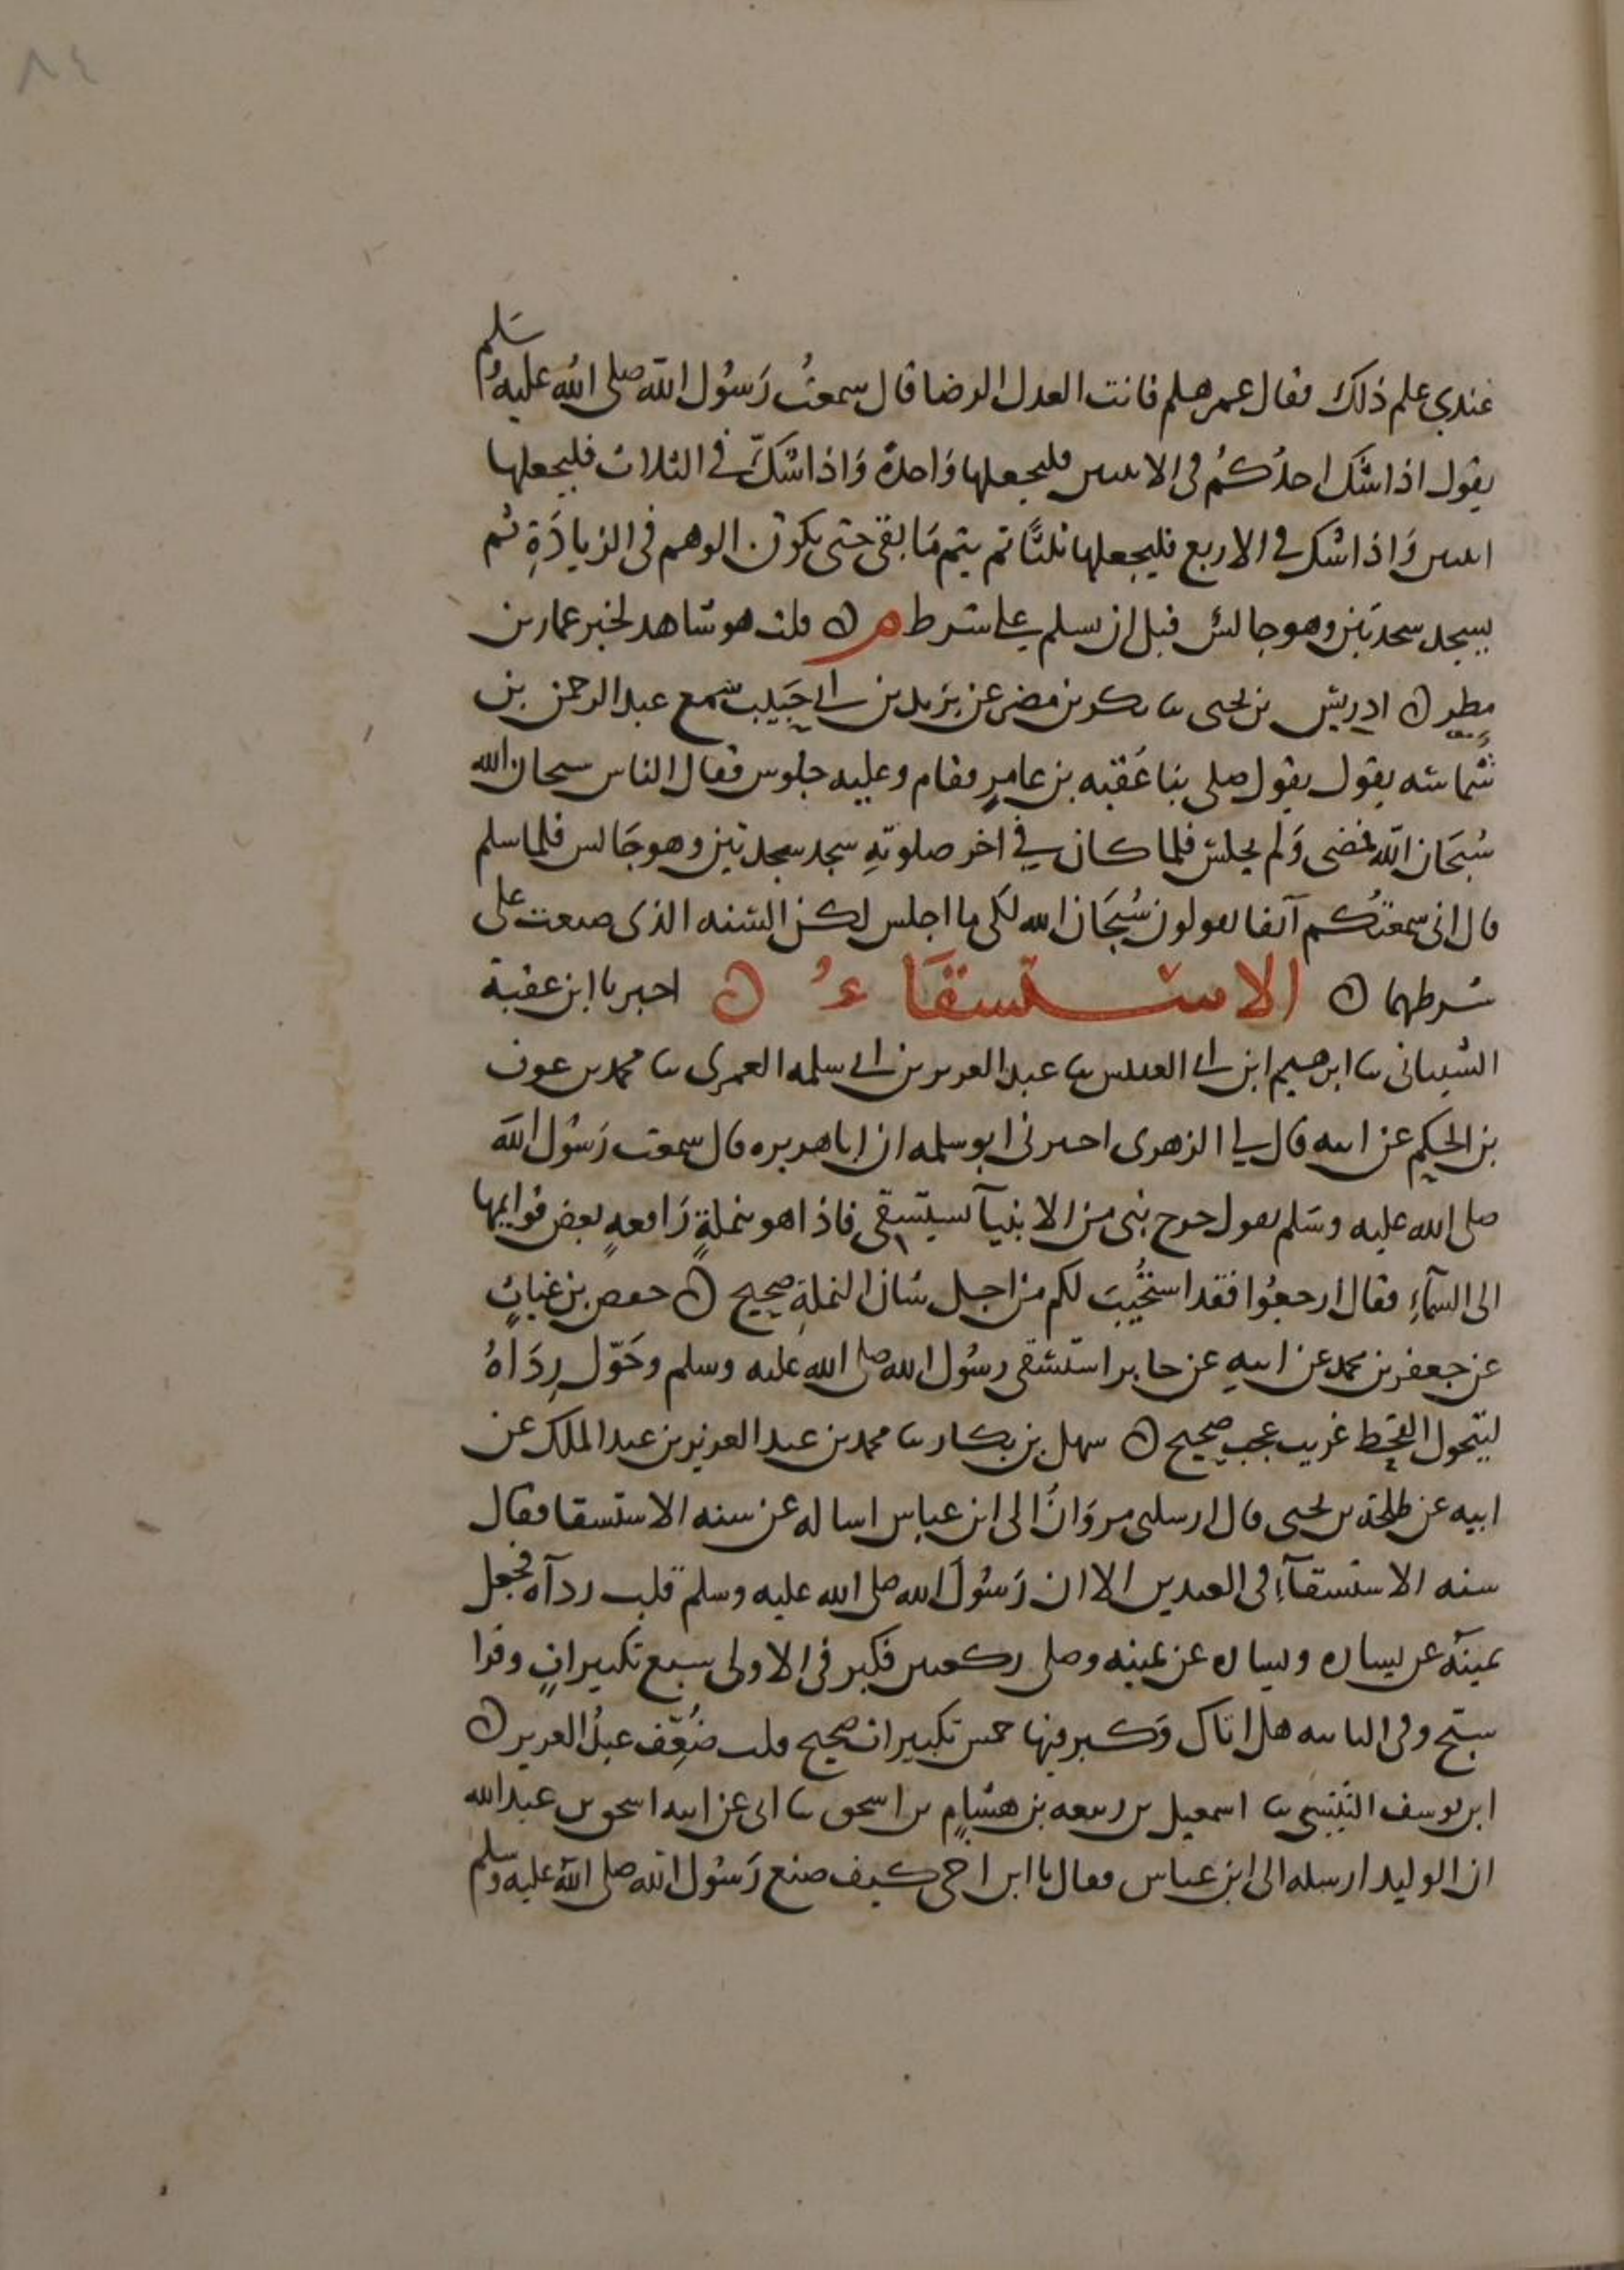 ٨٤
عندي علم ذلك فقال عمر هلم فانت العدل الرضا قال سمعتُ رَسُول الله صلى الله عليه وسَلم
يقول اذا شك احدُكُم في الاثنين فليجعلها وَاحدة وَاذا شكَّ في الثلاث فليجعلها
اثنين وَاذا شك في الاربع فليجعلها ثلثًا ثم يتم مَا بقى حتى يكون الوهم في الزيادَةِ ثم
يسجد سجدتين وهو جالس قبل ان يسلم على شرط م ٥ قلت هو شاهد لخبر عمار بن
مطر ٥ ادريس بن يحيى ثنا بكر بن مضر عن يزيد بن ابي حَبيب سَمع عبد الرحمن بن
شُماسَه يقول يقول صلى بنا عُقبه بن عامرٍ فقام وعليه جلوس فقال الناس سبحان الله
سُبحَان الله فمضى وَلم يجلس فلما كان في اخر صلوتِهِ سجد سجدتين وهو جَالس فلما سلم
قال اني سمعتكُم آنفا تقولون سُبحَان الله لكى ما اجلس لكن السُنه الذى صنعت على
شرطهما ٥ الاستسقَاءُ ٥ اخبرنا ابن عقبة
الشيبانى ثنا ابرهيم ابن ابي العنبس ثنا عبد العزيز بن ابي سلمه العمرى ثنا محمد بن عون
بن الحكيم عن ابيه قال لي الزهرى اخبرنى ابو سلمه ان ابا هريره قال سمعت رَسُول الله
صلى الله عليه وسَلم يقول خرج نبى من الانبيآ يستسقى فاذا هو بنملةٍ رَافعهٍ بعض قوايمها
الى السمآءِ فقال ارجعُوا فقد استُجُيبَ لكم من اجل شان النملةِ صحيح ٥ حفص بن غياثٍ
عن جعفر بن محمد عن ابيهِ عن جابر استسقى رسُول الله صلى الله عليه وسلم وحَوّل رِدَاهُ
ليتحول القحط غريب عجب صحيح ٥ سهل بن بكار ثنا محمد بن عبد العزيز بن عبد الملك عن
ابيه عن طلحة بن يحيى قال ارسلنى مروَانُ الى ابن عباس اساله عن سنه الاستسقا فقال
سنه الاستسقآءِ في العيدين الا ان رَسُولَ الله صلى الله عليه وسلم قلب ردآه فجعل
يمينَه عن يساره ويساره عن يمينه وصلى ركعتين فكبر في الاولى سبع تكبيراتٍ وقرا
سبّح وفي الثانيه هل اتاك وَكبر فيها خمس تكبيرات صحيح قلت ضُعّف عبدُ العزيز ٥
ابن يوسف التنيسى ثنا اسمعيل بن ربيعه بن هشامٍ بن اسحق ثنا ابى عن ابيه اسحق بن عبد الله
ان الوليد ارسله الى ابن عباس فقال يا ابن اخى كيف صنع رَسُول الله صلى الله عليه وسلم